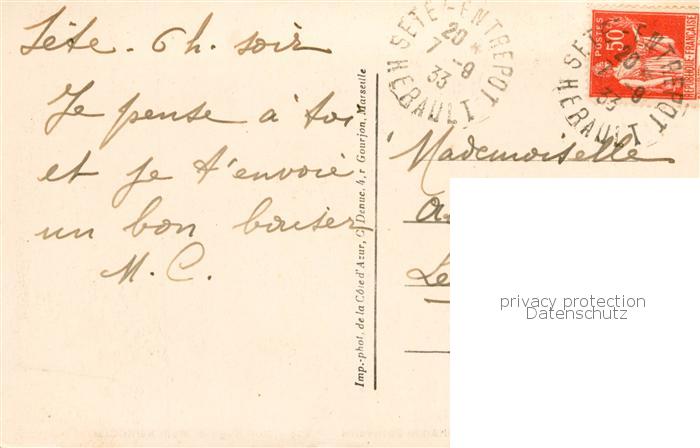 Sète - 6 h. soir
Je pense à toi
et je t'envoie
un bon baiser
M. C.
Imp.-phot. de la Côte d'Azur, C. Denuc, 4, r Gourjon, Marseille
SETE-ENTREPOT
20 *
7 - 9
33
HERAULT
POSTES
50
REPUBLIQUE FRANÇAISE
SETE-ENTREPOT
20 *
7 - 9
33
HERAULT
Mademoiselle
Le
privacy protection
Datenschutz